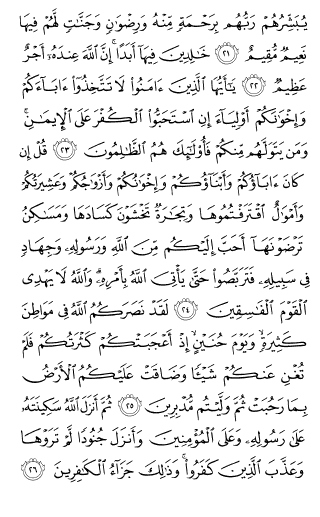 يُبَشِّرُهُمْ رَبُّهُم بِرَحْمَةٍ مِّنْهُ وَرِضْوَٰنٍ وَجَنَّـٰتٍ لَّهُمْ فِيهَا
نَعِيمٌ مُّقِيمٌ ٢١ خَـٰلِدِينَ فِيهَآ أَبَدًا ۚ إِنَّ ٱللَّهَ عِندَهُۥٓ أَجْرٌ
عَظِيمٌ ٢٢ يَـٰٓأَيُّهَا ٱلَّذِينَ ءَامَنُوا۟ لَا تَتَّخِذُوٓا۟ ءَابَآءَكُمْ
وَإِخْوَٰنَكُمْ أَوْلِيَآءَ إِنِ ٱسْتَحَبُّوا۟ ٱلْكُفْرَ عَلَى ٱلْإِيمَـٰنِ ۚ
وَمَن يَتَوَلَّهُم مِّنكُمْ فَأُو۟لَـٰٓئِكَ هُمُ ٱلظَّـٰلِمُونَ ٢٣ قُلْ إِن
كَانَ ءَابَآؤُكُمْ وَأَبْنَآؤُكُمْ وَإِخْوَٰنُكُمْ وَأَزْوَٰجُكُمْ وَعَشِيرَتُكُمْ
وَأَمْوَٰلٌ ٱقْتَرَفْتُمُوهَا وَتِجَـٰرَةٌ تَخْشَوْنَ كَسَادَهَا وَمَسَـٰكِنُ
تَرْضَوْنَهَآ أَحَبَّ إِلَيْكُم مِّنَ ٱللَّهِ وَرَسُولِهِۦ وَجِهَادٍ
فِى سَبِيلِهِۦ فَتَرَبَّصُوا۟ حَتَّىٰ يَأْتِىَ ٱللَّهُ بِأَمْرِهِۦ ۗ وَٱللَّهُ لَا يَهْدِى
ٱلْقَوْمَ ٱلْفَـٰسِقِينَ ٢٤ لَقَدْ نَصَرَكُمُ ٱللَّهُ فِى مَوَاطِنَ
كَثِيرَةٍ ۙ وَيَوْمَ حُنَيْنٍ ۙ إِذْ أَعْجَبَتْكُمْ كَثْرَتُكُمْ فَلَمْ
تُغْنِ عَنكُمْ شَيْـًٔا وَضَاقَتْ عَلَيْكُمُ ٱلْأَرْضُ
بِمَا رَحُبَتْ ثُمَّ وَلَّيْتُم مُّدْبِرِينَ ٢٥ ثُمَّ أَنزَلَ ٱللَّهُ سَكِينَتَهُۥ
عَلَىٰ رَسُولِهِۦ وَعَلَى ٱلْمُؤْمِنِينَ وَأَنزَلَ جُنُودًا لَّمْ تَرَوْهَا
وَعَذَّبَ ٱلَّذِينَ كَفَرُوا۟ ۚ وَذَٰلِكَ جَزَآءُ ٱلْكَـٰفِرِينَ ٢٦